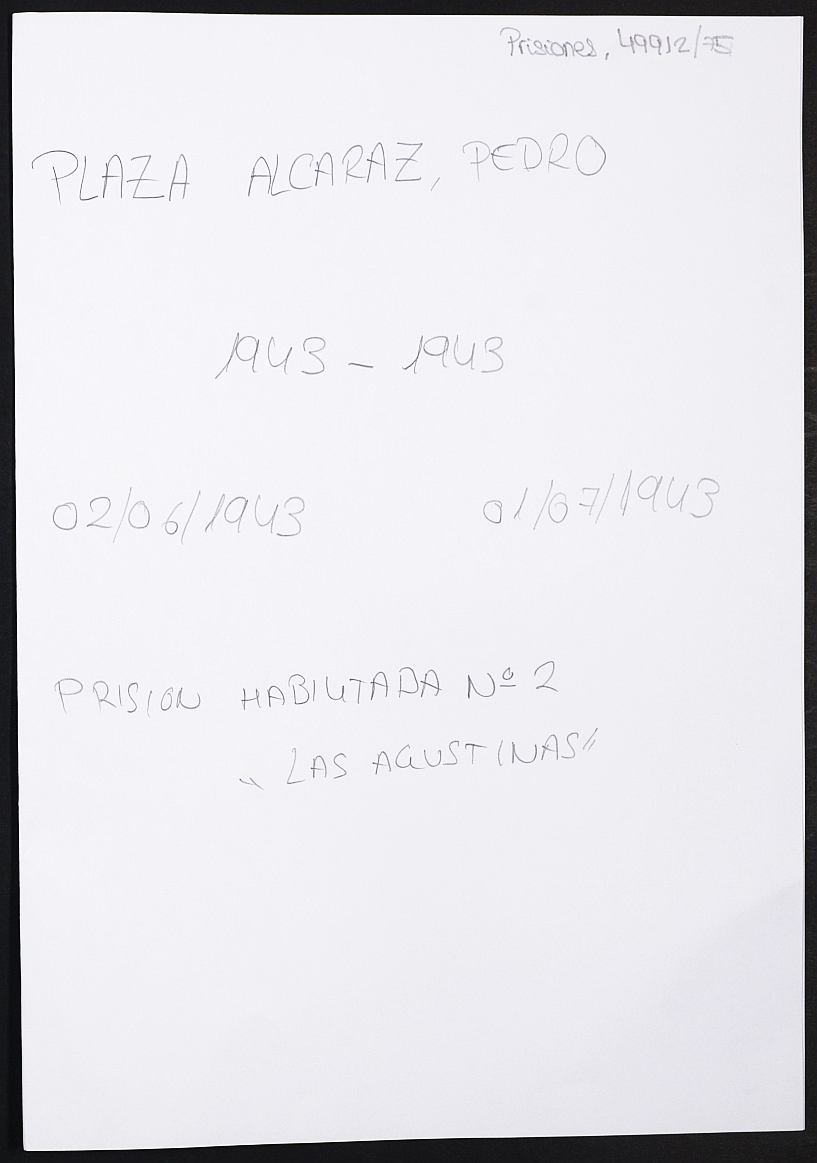 Prisiones, 49912/75
PLAZA ALCARAZ, PEDRO
1943 - 1943
02/06/1943 01/07/1943
PRISION HABILITADA Nº 2
"LAS AGUSTINAS"